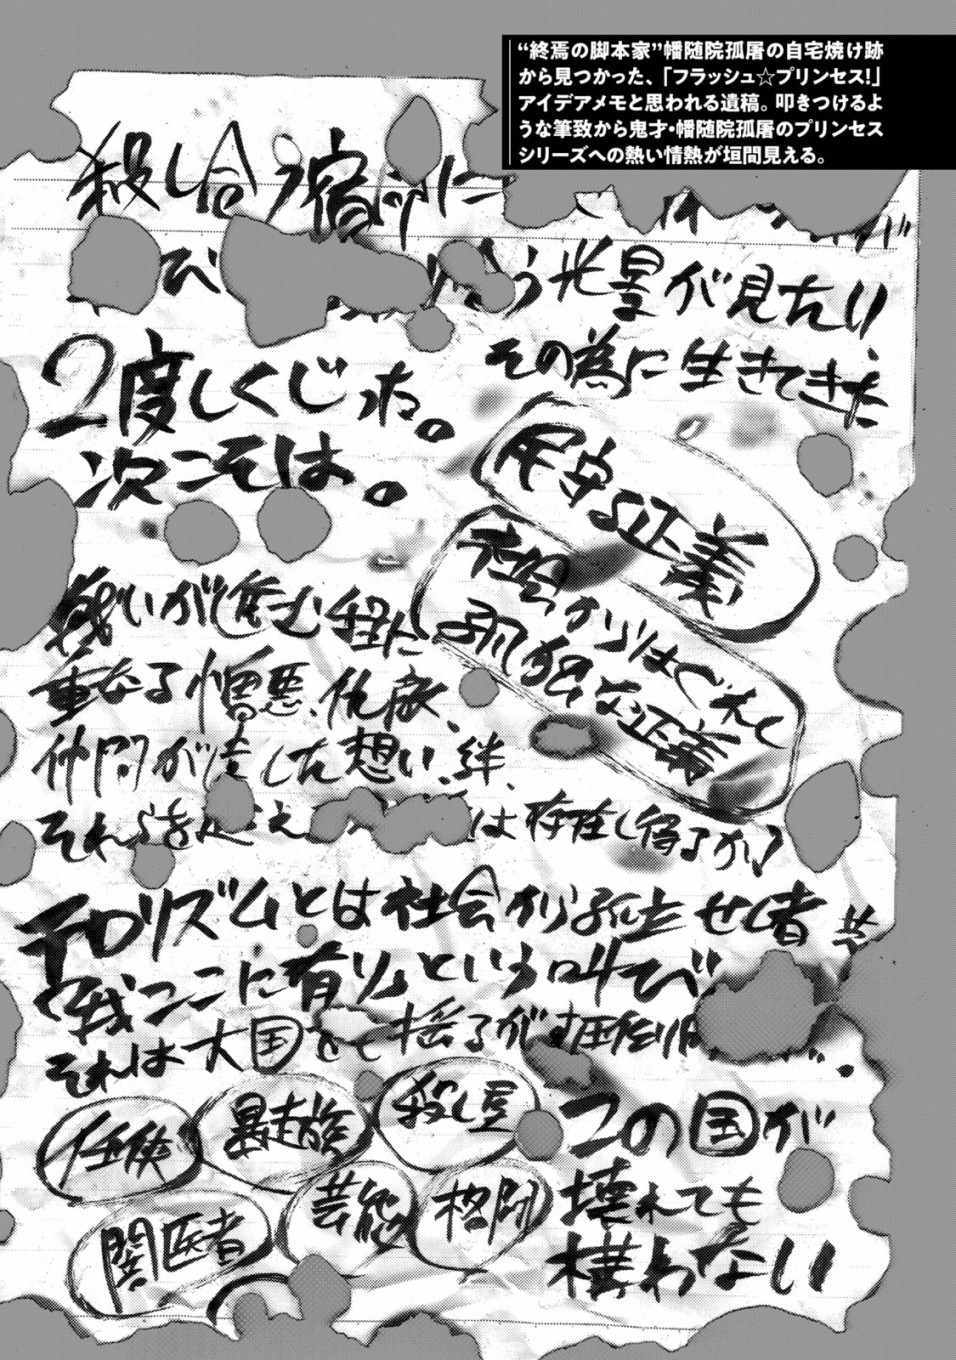 “終焉の脚本家”幡随院孤屠の自宅焼け跡
から見つかった、「フラッシュ☆プリンセス!」
アイデアメモと思われる遺稿。叩きつけるよ
うな筆致から鬼才・幡随院孤屠のプリンセス
シリーズへの熱い情熱が垣間見える。
殺し合う宿命に
が
び
う光景が見たい
その為に生きてきた
2度しくじった。
次こそは。
民守る正義
社会からはぐれし
孤独な正義
戦いが進む程に
重なる憎悪、仇敵、
仲間が遺した想い、絆、
それらを超え
は存在し得るか?
テロリズムとは社会から孤立せし者共
我ここに有りという叫び
それは大国をも揺るがす圧倒的
任侠
暴走族
殺し屋
闇医者
芸能
格闘
この国が
壊れても
構わない